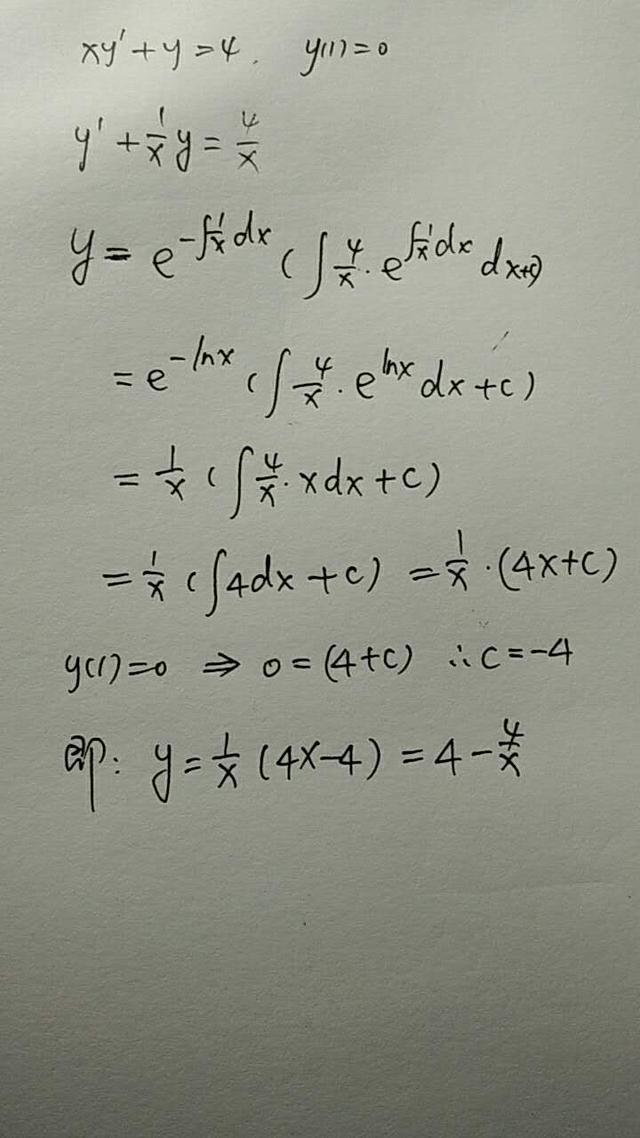 xy' + y = 4, y(1) = 0
y' + 1/x y = 4/x
y = e^{-∫1/x dx} (∫ 4/x · e^{∫1/x dx} dx+c)
= e^{-lnx} (∫ 4/x · e^{lnx} dx + c)
= 1/x (∫ 4/x · x dx + c)
= 1/x (∫ 4dx + c) = 1/x · (4x+c)
y(1)=0 ⇒ 0 = (4+c) ∴ c = -4
即: y = 1/x (4x-4) = 4 - 4/x